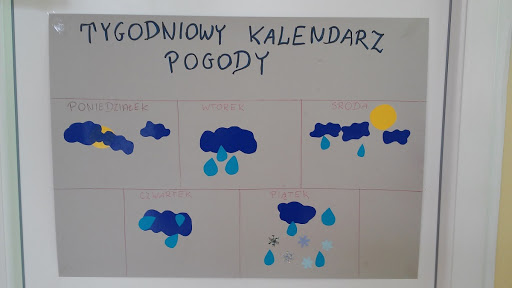 TYGODNIOWY KALENDARZ
POGODY
PONIEDZIAŁEK WTOREK ŚRODA
CZWARTEK PIĄTEK